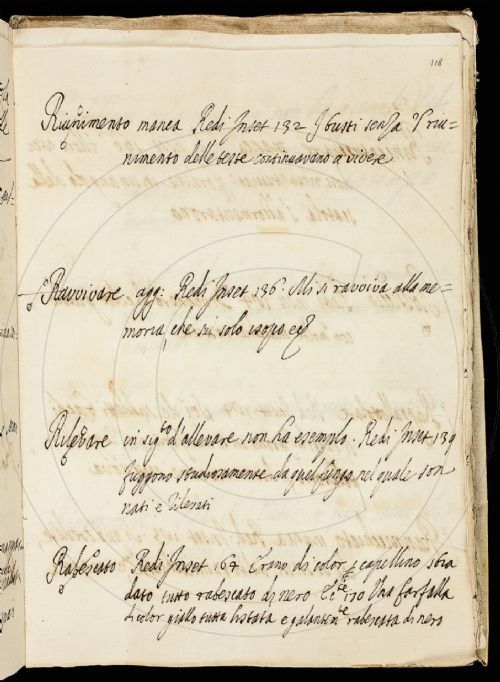 118
Riunimento manca Redi Inset 132 I busti senza 'l riu=
nimento delle teste continuavano a vivere
Ravvivare agg: Redi Inset 136. Mi si ravviva alla me=
moria, che
solo
Rilevare in sigto d'allevare non ha esempio. Redi Inset 139
fuggono studiosamente da quel fungo nel quale son
nati e rilevati
Rabescato Redi Inset 164 Erano di color capellino sbia
dato tutto rabescato di nero 170 Una farfalla
di color giallo tutta listata e galantemte rabescata di nero